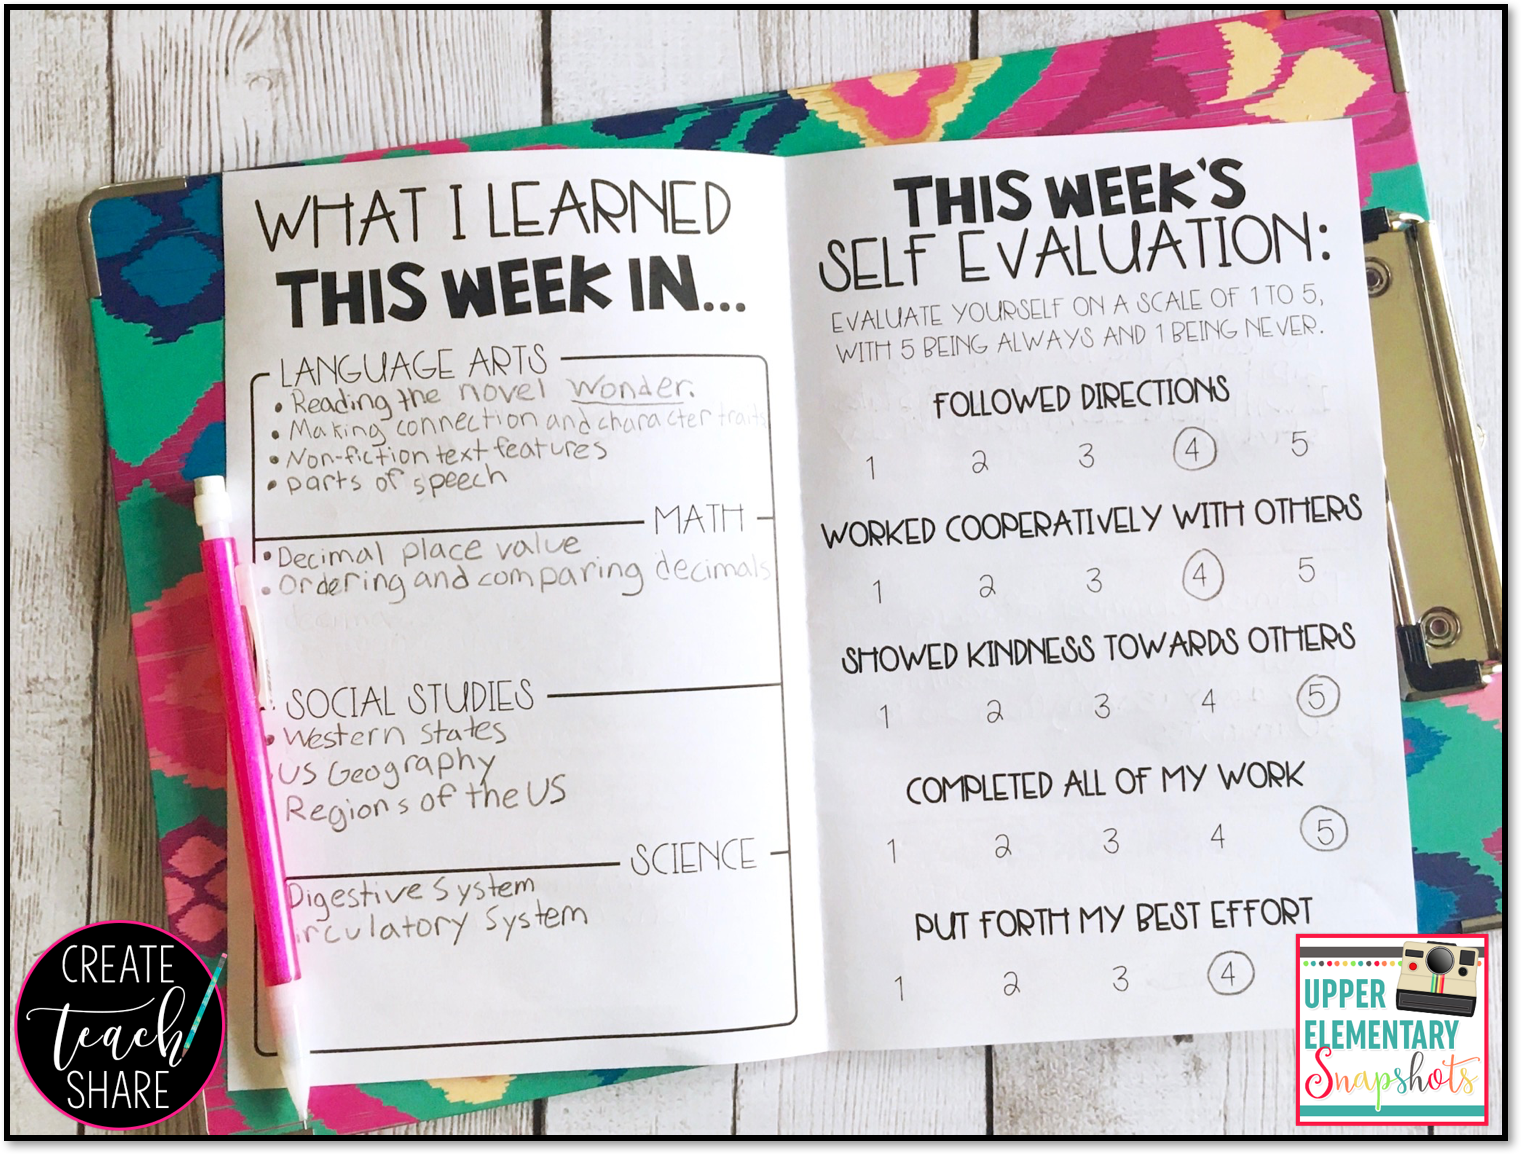 WHAT I LEARNED
THIS WEEK IN...
LANGUAGE ARTS
• Reading the novel Wonder.
• Making connection and character traits
• Non-fiction text features
• parts of speech
MATH
• Decimal place value
• Ordering and comparing decimals
SOCIAL STUDIES
• Western States
US Geography
Regions of the US
SCIENCE
Digestive System
irculatory System
THIS WEEK'S
SELF EVALUATION:
EVALUATE YOURSELF ON A SCALE OF 1 TO 5,
WITH 5 BEING ALWAYS AND 1 BEING NEVER.
FOLLOWED DIRECTIONS
1 2 3 4 5
WORKED COOPERATIVELY WITH OTHERS
1 2 3 4 5
SHOWED KINDNESS TOWARDS OTHERS
1 2 3 4 5
COMPLETED ALL OF MY WORK
1 2 3 4 5
PUT FORTH MY BEST EFFORT
1 2 3 4
CREATE
teach
SHARE
UPPER
ELEMENTARY
Snapshots